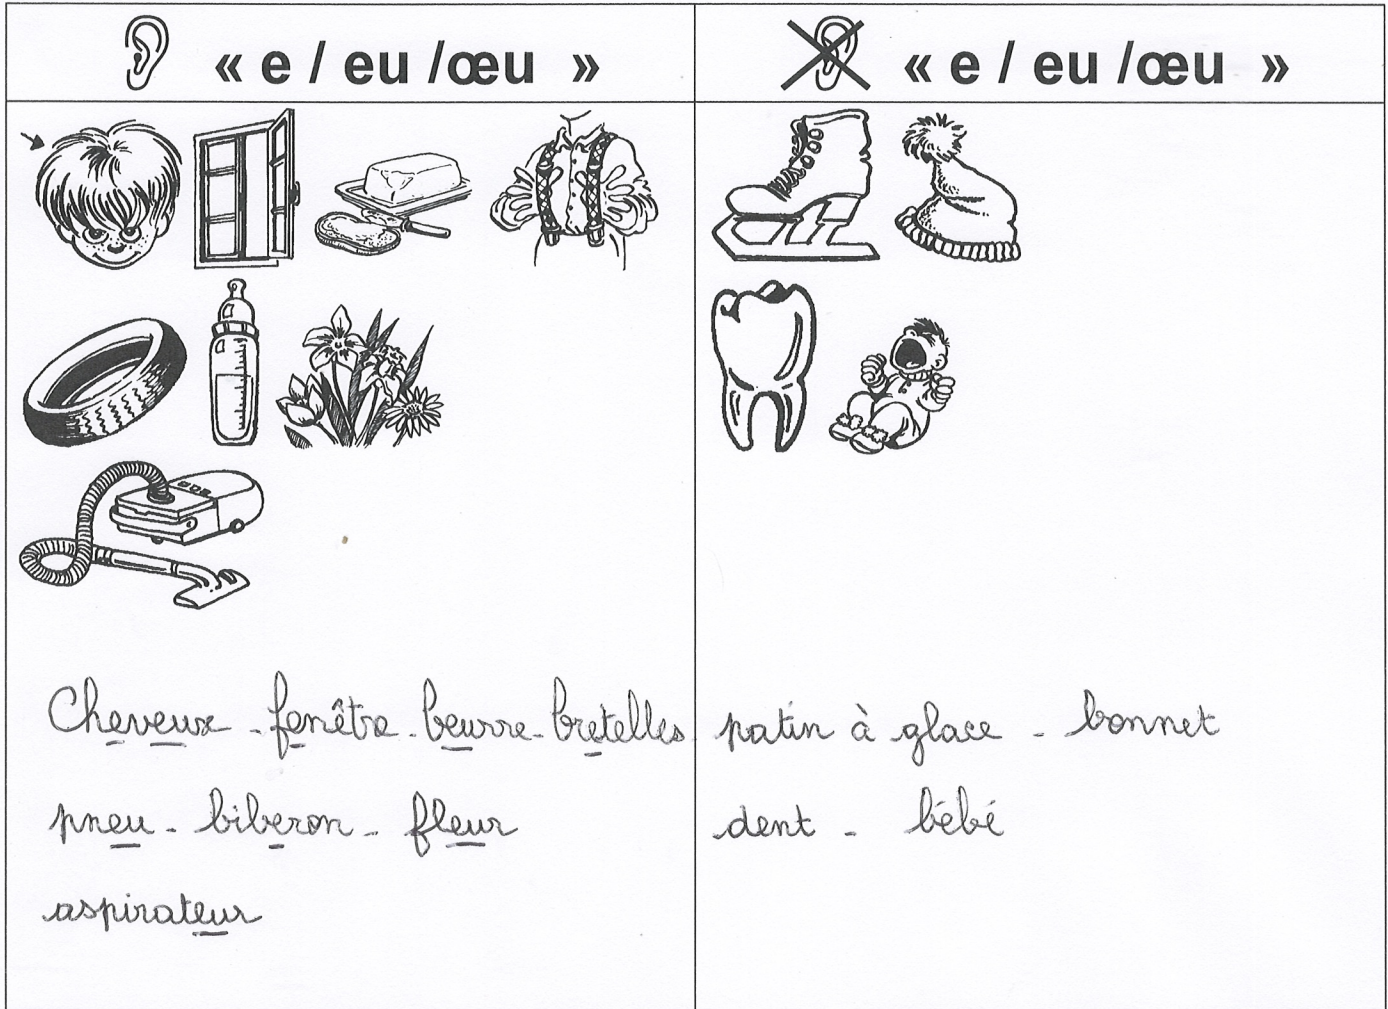 « e / eu /œu »
« e / eu /œu »
Cheveux - fenêtre - beurre - bretelles
pneu - biberon - fleur
aspirateur
patin à glace - bonnet
dent - bébé